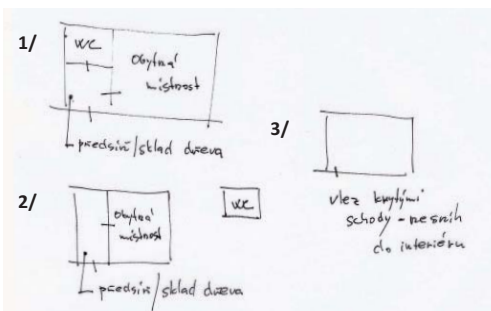 1/
WC
Obytná
místnost
předsíň/sklad dřeva
2/
Obytná
místnost
WC
předsíň/sklad dřeva
3/
vlez krytými
schody - nesníh
do interiéru